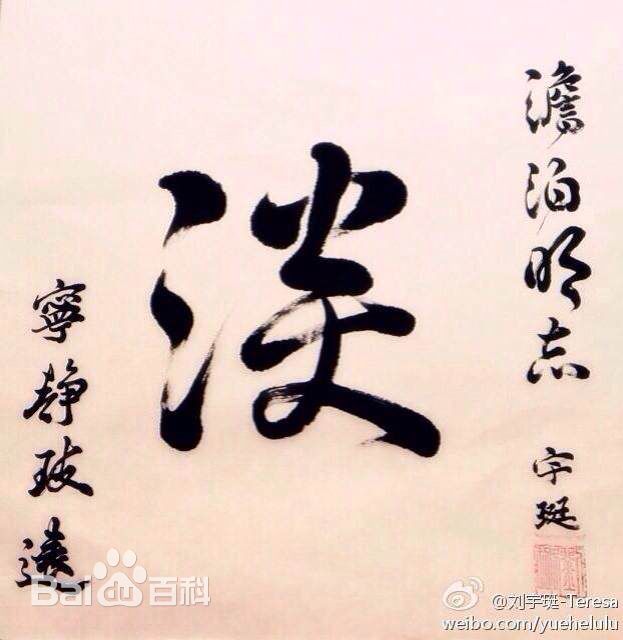 澹泊明志
宇珽
淡
寧靜致遠
Bai百科
@刘宇珽-Teresa
weibo.com/yuehelulu